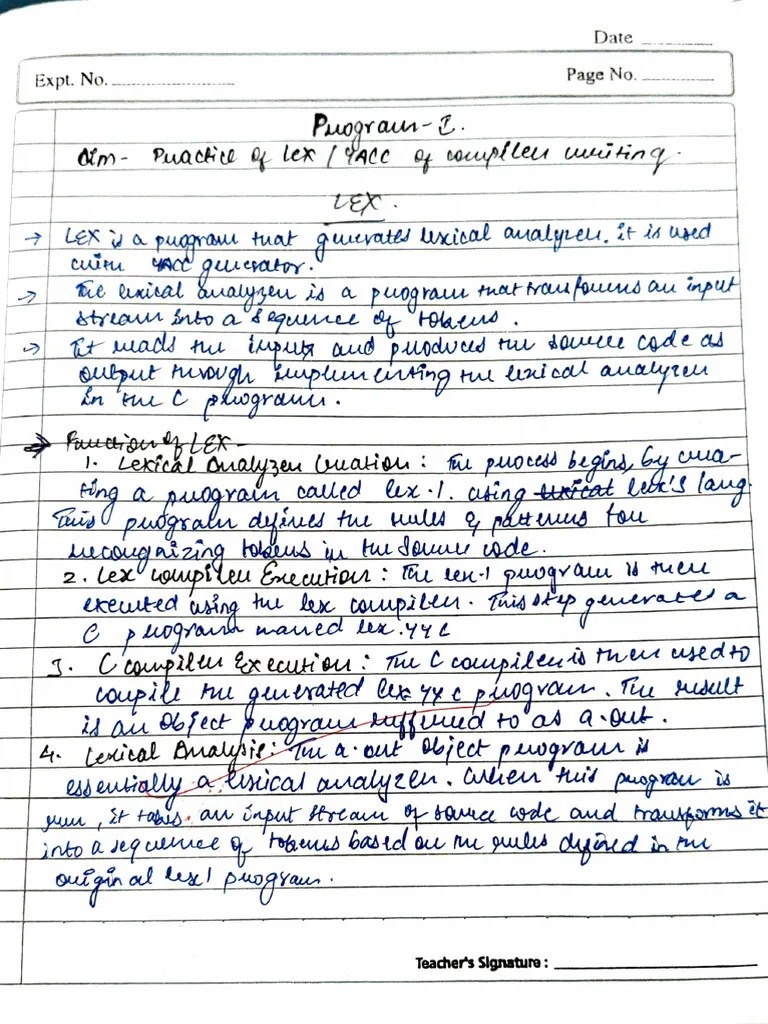 Date
Expt. No.
Page No.
Program-I.
Aim- Practice of Lex / YACC of compiler writing.
LEX.
→ LEX is a program that generates lexical analyzer. it is used
with YACC generator.
→ The lexical analyzer is a program that transforms an input
stream into a sequence of tokens.
→ It reads the input and produces the source code as
output through implementing the lexical analyzer
in the C program.
→ Function of LEX-
1. Lexical Analyzer Creation : The process begins, by crea-
ting a program called lex.1. using lexical lex's lang.
This program defines the rules & patterns for
recongnizing tokens in the source code.
2. Lex compiler Execution : The lex-1 program is then
executed using the lex compiler. This step generates a
C program named lex.yyc
3. C compiler Execution : The C compiler is then used to
compile the generated lex yy c program. The result
is an Object program reffered to as a.out.
4. Lexical Analysis: The a.out Object program is
essentially a lexical analyzer. When this program is
run, it takes an input stream of source code and transforms it
into a sequence of tokens based on the rules defined in the
original lex1 program.
Teacher's Signature :